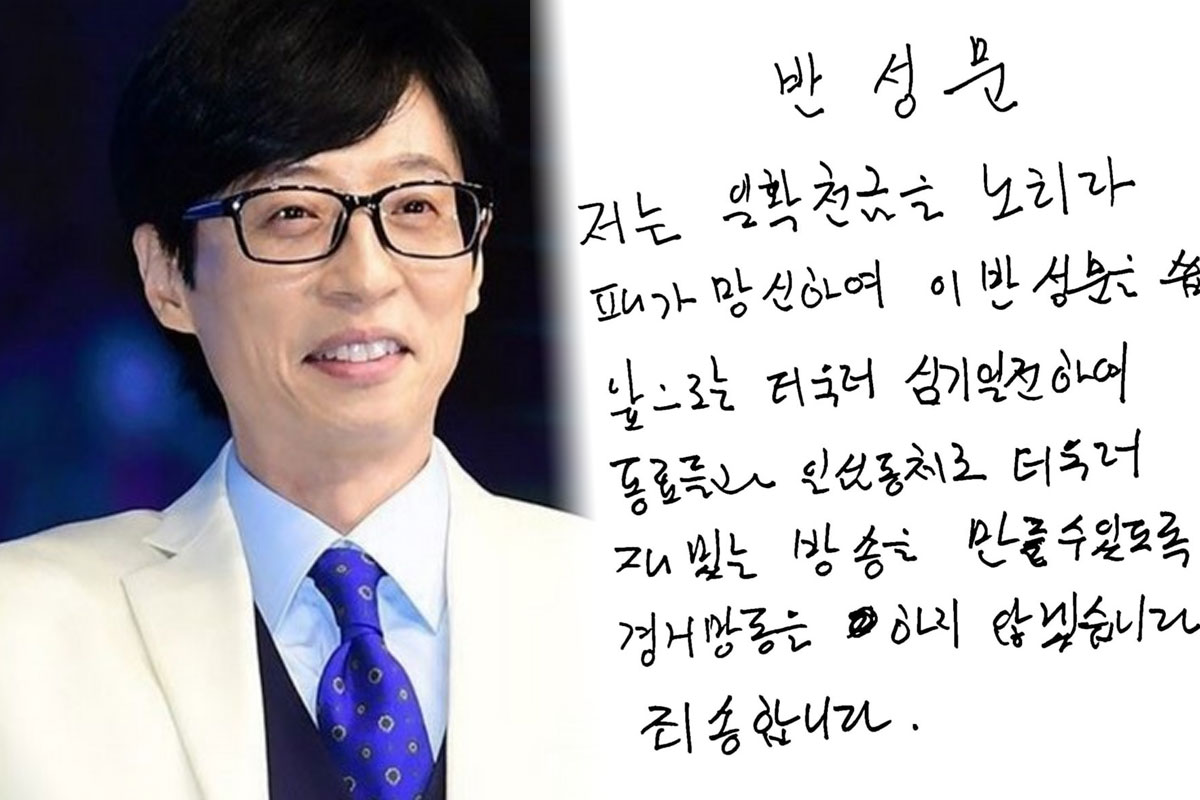 반성문
저는 일확천금을 노리다
패가망신하여 이 반성문을 씁
앞으로는 더욱더 심기일전하여
동료들과 일심동체로 더욱더
재밌는 방송을 만들수있도록
경거망동은 하지 않겠습니다
죄송합니다.